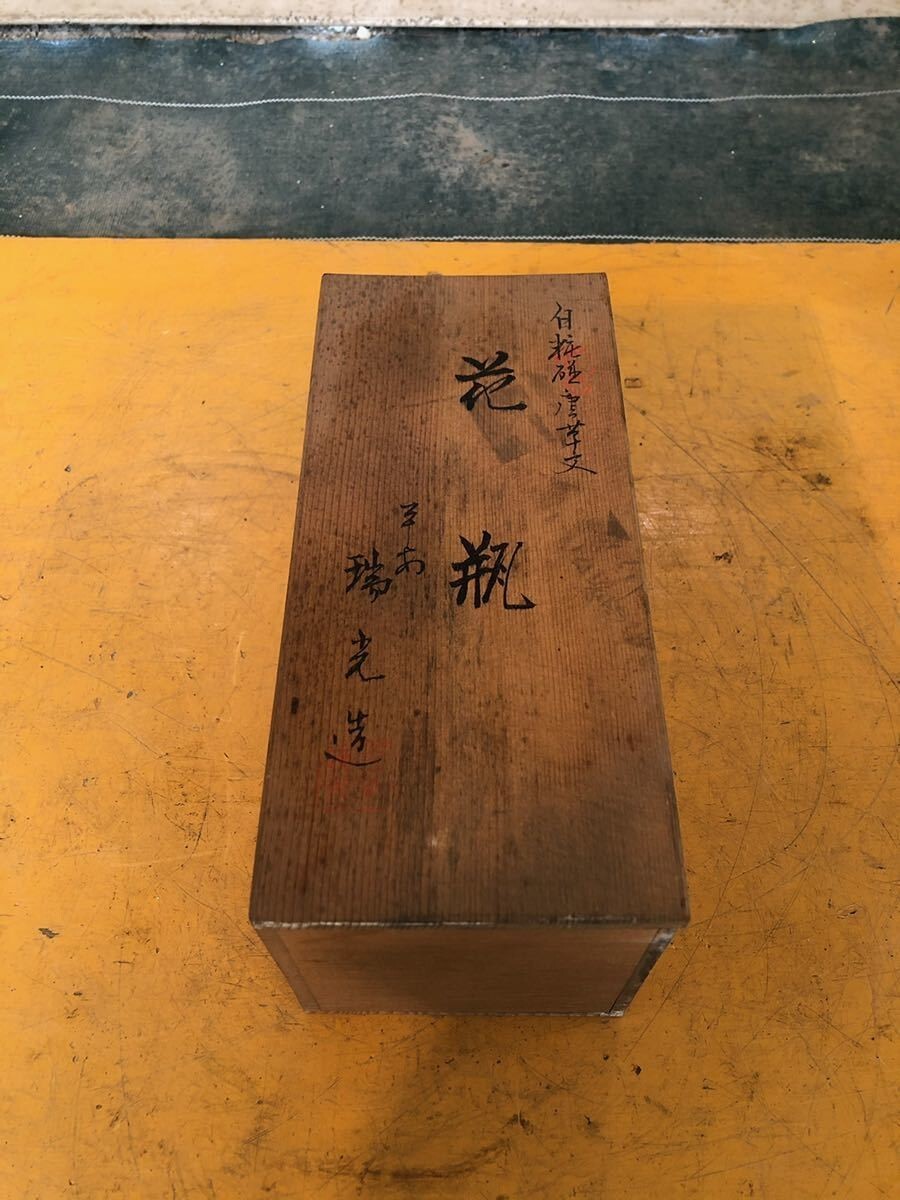 白粧磁唐草文
花瓶
平安
瑞光造